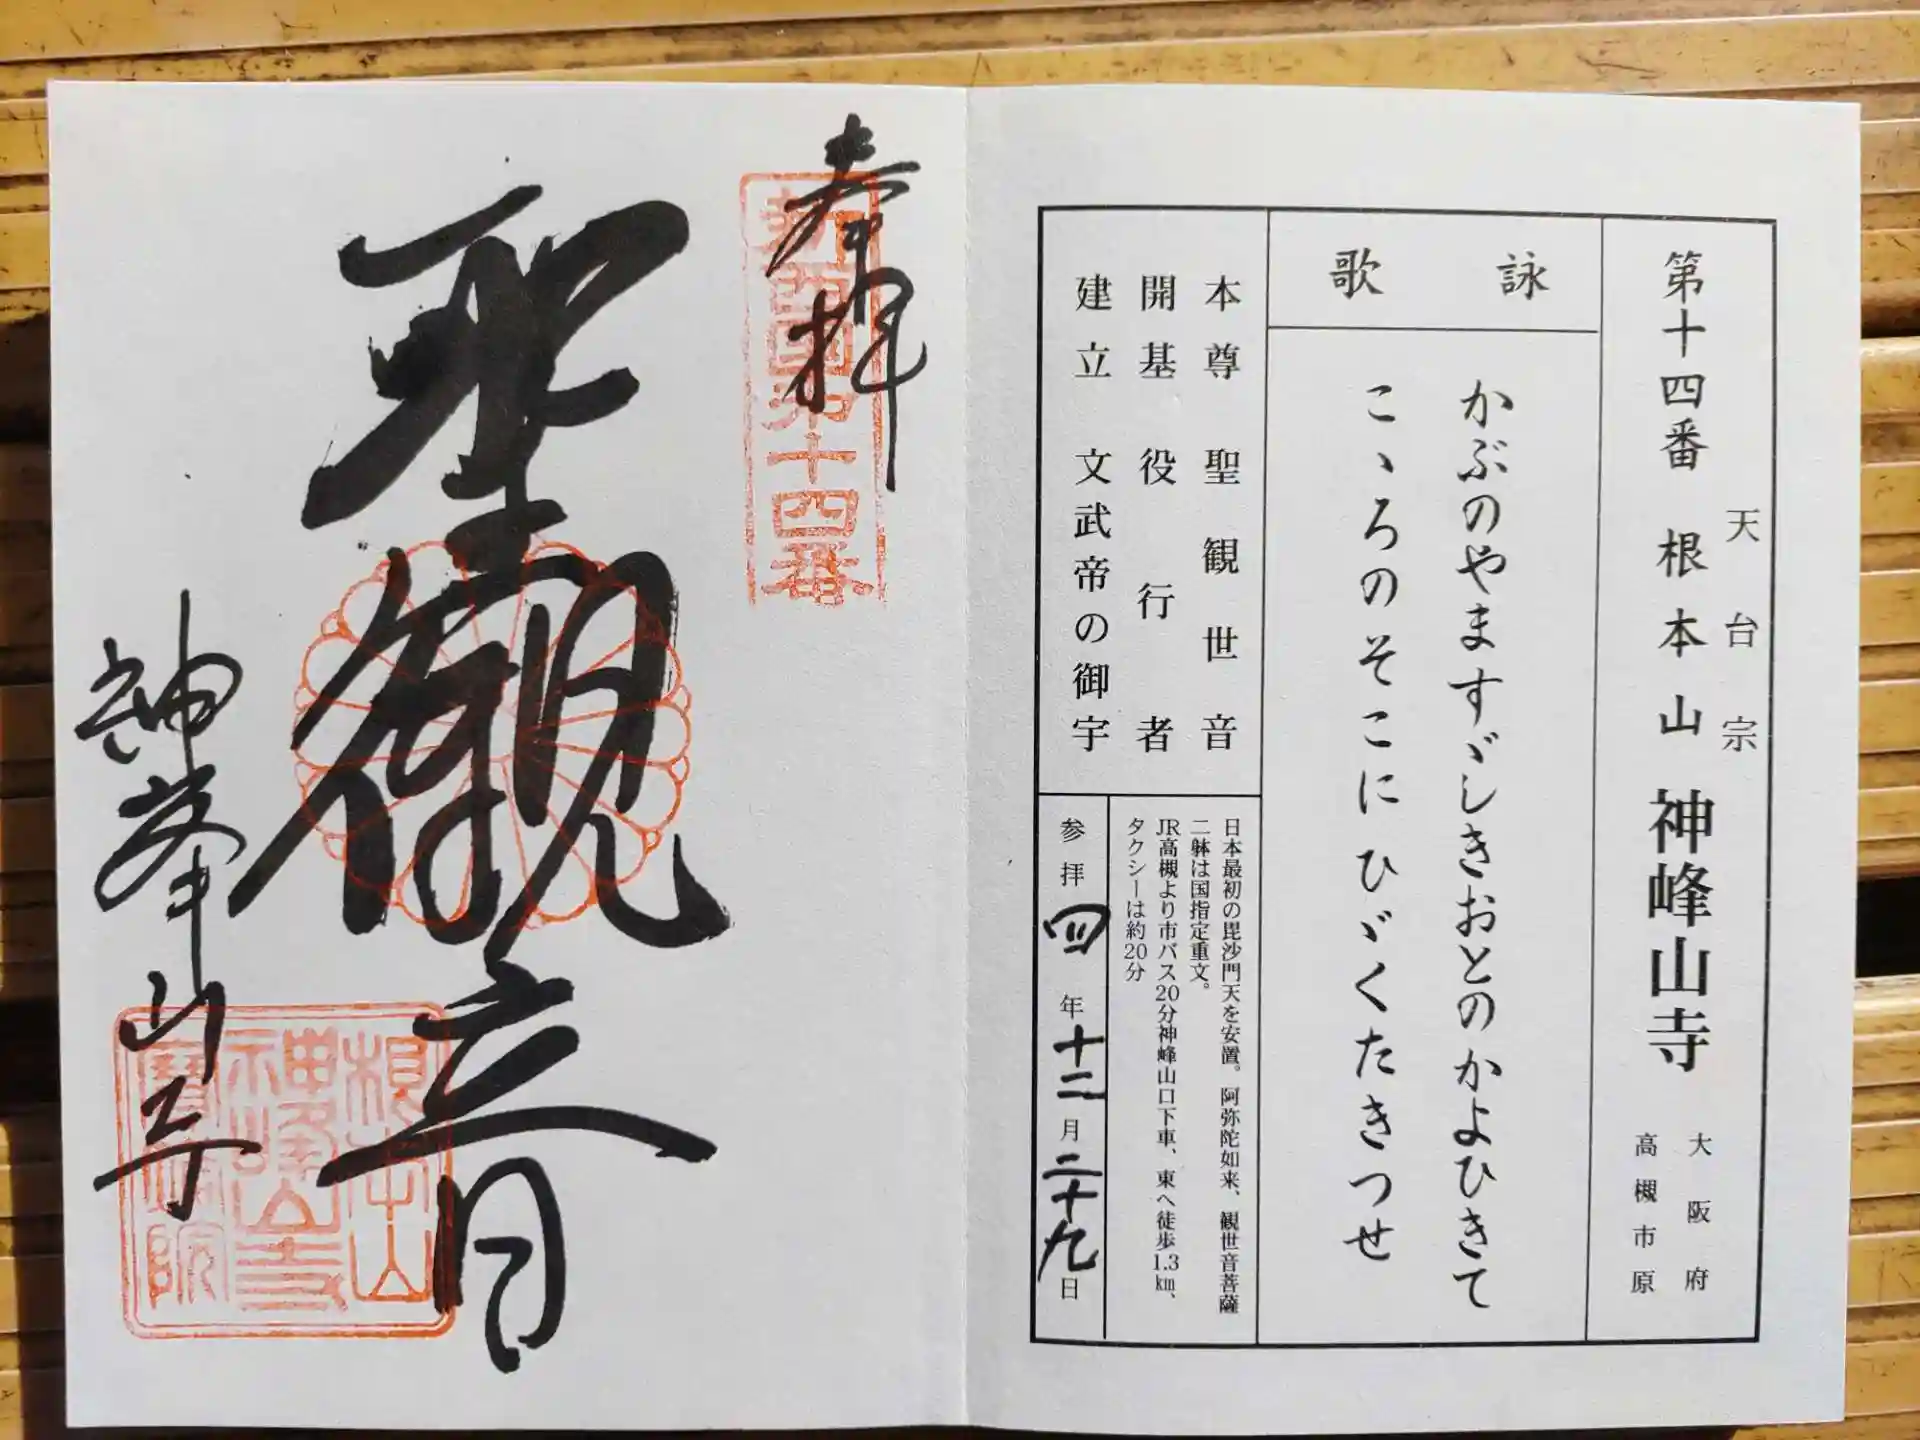 天台宗
第十四番 根本山 神峰山寺
大阪府
高槻市原
詠歌
かぶのやますゞしきおとのかよひきて
こゝろのそこにひゞくたきつせ
本尊 聖観世音
開基 役行者
建立 文武帝の御宇
日本最初の毘沙門天を安置。阿弥陀如来、観世音菩薩
二躰は国指定重文。
JR高槻より市バス20分神峰山口下車、東へ徒歩1.3㎞、
タクシーは約20分
参拝 四年十二月二十九日
奉拝
新西國第十四番
聖観音
神峯山寺
根本山
神峰山寺
寳塔院